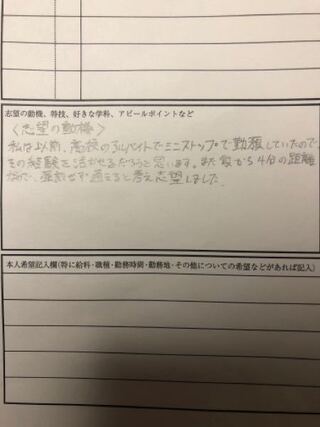 志望の動機、特技、好きな学科、アピールポイントなど
〈志望の動機〉
私は以前、高校のアルバイトでミニストップで勤務していたので、
その経験を活かせるだろうと思います。また家から4分の距離
なので、無理せず通えると考え志望しました。
本人希望記入欄(特に給料・職種・勤務時間・勤務地・その他についての希望などがあれば記入)